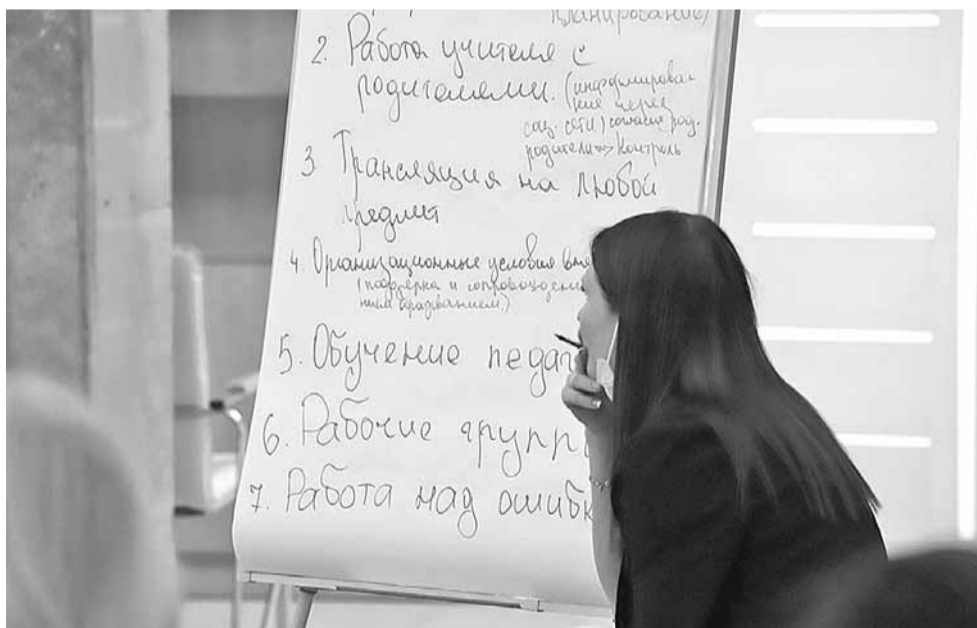 планирование)
2. Работа учителя с
родителями. (информирова-
ние через
соц. сети) согласие род.
родители => Контроль
3. Трансляция на любой
предмет
4. Организационные условия
(поддержка и
5. Обучение педаг
6. Рабочие групп
7. Работа над ошибк